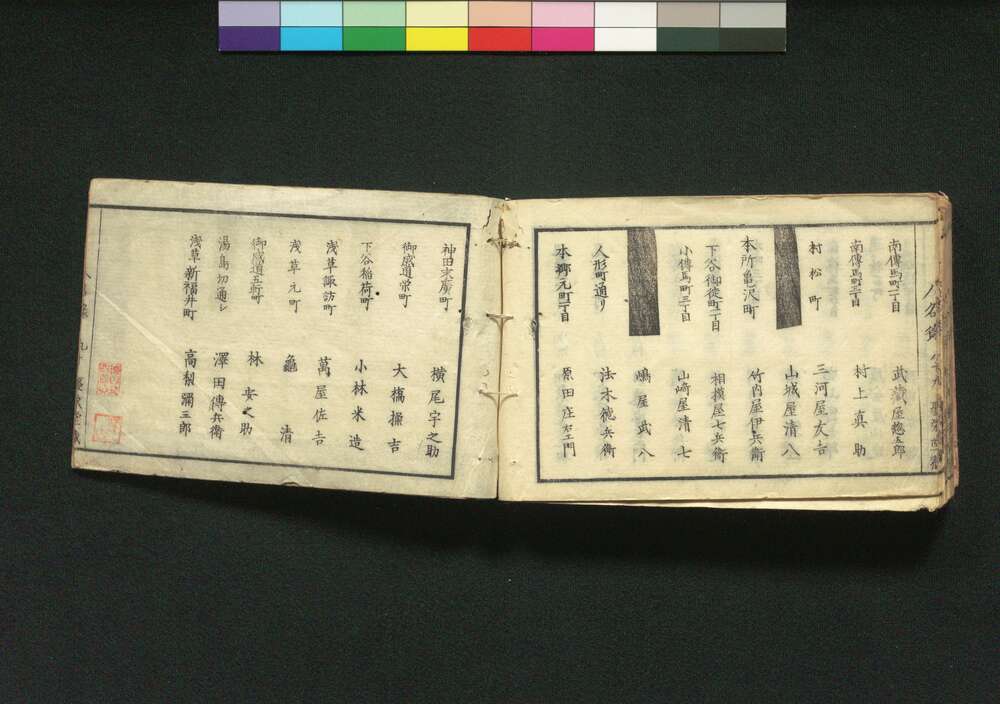 南傳馬町一丁目 武蔵屋惣五郎
南傳馬町三丁目 村上真助
村松町 三河屋友吉
山城屋清八
本所亀沢町 竹内屋伊兵衛
下谷御徒町一丁目 相模屋七兵衛
小傳馬町三丁目 山崎屋清七
嶋屋武八
人形町通り 法木徳兵衛
本郷元町一丁目 原田庄右エ門
神田末廣町 横尾宇之助
御成道栄町 大橋操吉
下谷稲荷町 小林米造
浅草諏訪町 萬屋佐吉
浅草元町 龜清
御成道五軒町 林安之助
湯島切通シ 澤田傳兵衛
浅草新福井町 高梨彌三郎